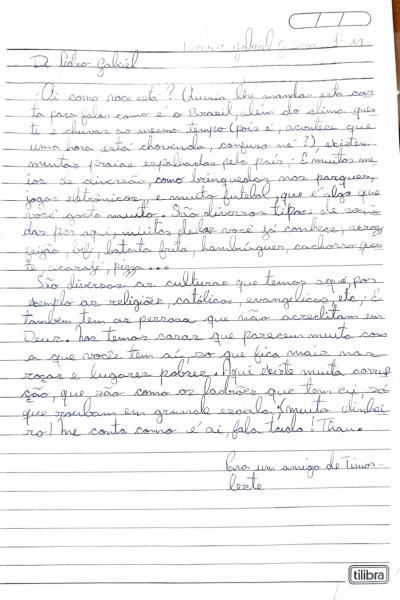 De Pedro Gabriel
Oi como voce está? Queria lhe mandar esta car
ta para falar como é o Brasil, além do clima quen
te e chuvas ao mesmo tempo (pois é, acontece que
uma hora está chovendo, confuso né?), existem
muitas praias espalhadas pelo país; E muitos me
ios de diversão, como brinquedos nos parques,
jogos eletrônicos, e muito futebol, que é algo que
você gosta muuito. São diversos tipos de comi
das por aqui, muitos delas você já conhece, arroz
feijão, bife, batata frita, hambúrguer, cachorro quen
te, acarajé, pizza...
São diversas as culturas que temos aqui, por
exemplo as religiões, católicos, evangélicos, etc; E
também tem as pessoas que não acreditam em
Deus. Nos temos casas que parecem muito com
a que vocês tem aí, so que fica mais nas
roças e lugares pobres. Aqui existe muita corrup
ção, que são como os ladrões que tem aí, só
que roubam em grande escala, (muito dinhei
ro! me conta como é aí, fala tudo! Thau.
Para um amigo de Timor-
leste
tilibra